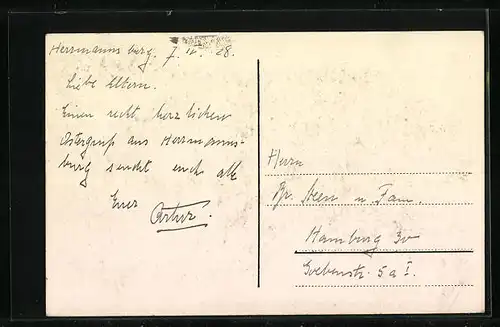 Herrmannsburg, 7. IV. 28.
Liebe Eltern.
Einen recht herzlichen
Ostergruß aus Herrmanns-
burg sendet euch alle
Euer
Artur.
Herrn
Steen u Fam.
Hamburg 30
Goebenstr. 5a I.